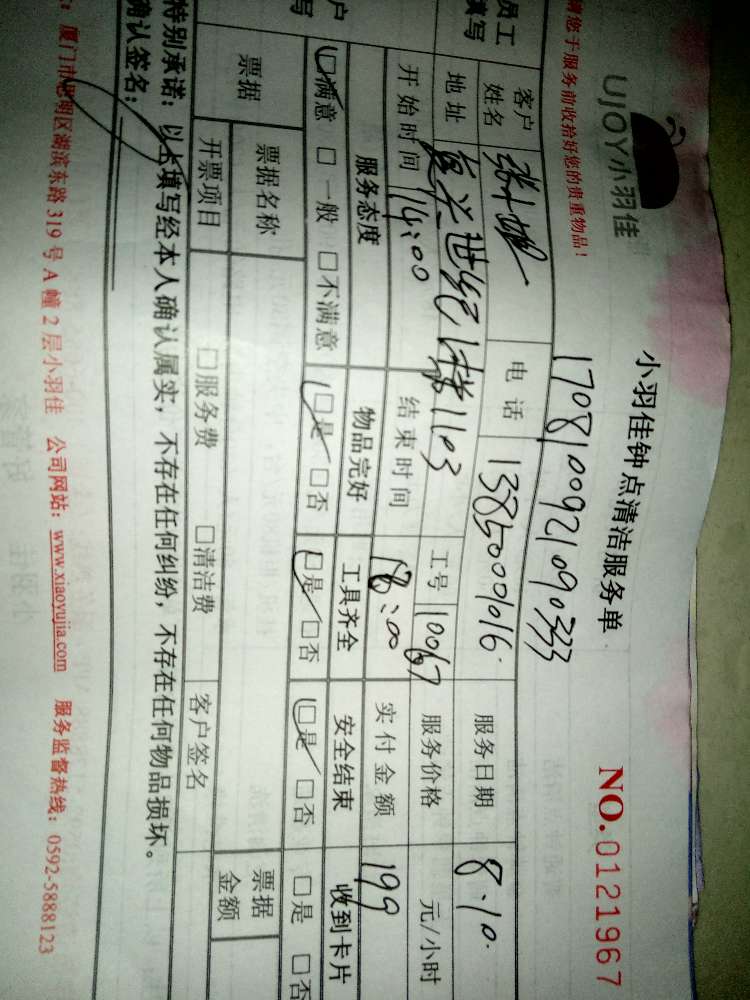 UJOY小羽佳
小羽佳钟点清洁服务单
NO.0121967
请您于服务前收拾好您的贵重物品!
1708100921090333
客户姓名 电话 13850001016. 服务日期 8.10.
地址 复兴世纪 1103 工号 10067 服务价格 元/小时
开始时间 14:00 结束时间 18:00 实付金额 199
员工填写
服务态度 物品完好 工具齐全 安全结束 收到卡片
☑满意 □一般 □不满意 ☑是 □否 ☑是 □否 ☑是 □否 □是 □否
票据 票据名称 票据金额
开票项目 □服务费 □清洁费 客户签名
特别承诺:以上填写经本人确认属实,不存在任何纠纷,不存在任何物品损坏。
确认签名:
厦门市思明区湖滨东路319号A幢2层小羽佳 公司网站:www.xiaoyujia.com 服务监督热线:0592-5888123